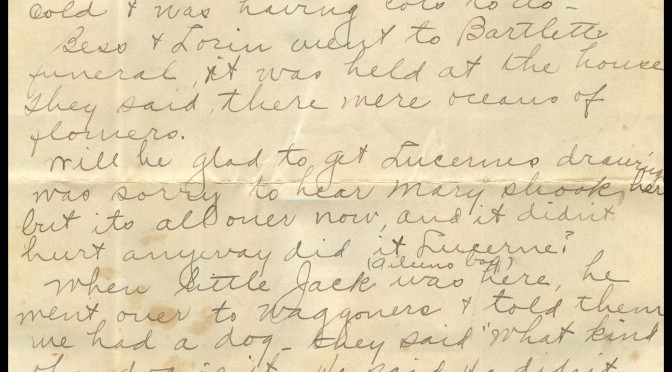 cold & was having lots to do -
Bess & Lorin went to Bartletts
funeral, it was held at the house
they said, there were oceans of
flowers.
Will be glad to get Lucernes drawing
was sorry to hear Mary shook her
but its all over now, and it didn't
hurt anyway did it Lucerne?
When little Jack was here, he
went over to Waggoners & told them
we had a dog - they said "What kind
of a dog is it, he said he didn't